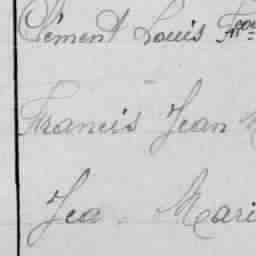 Clément Louis
Francis Jean
Jea Mari